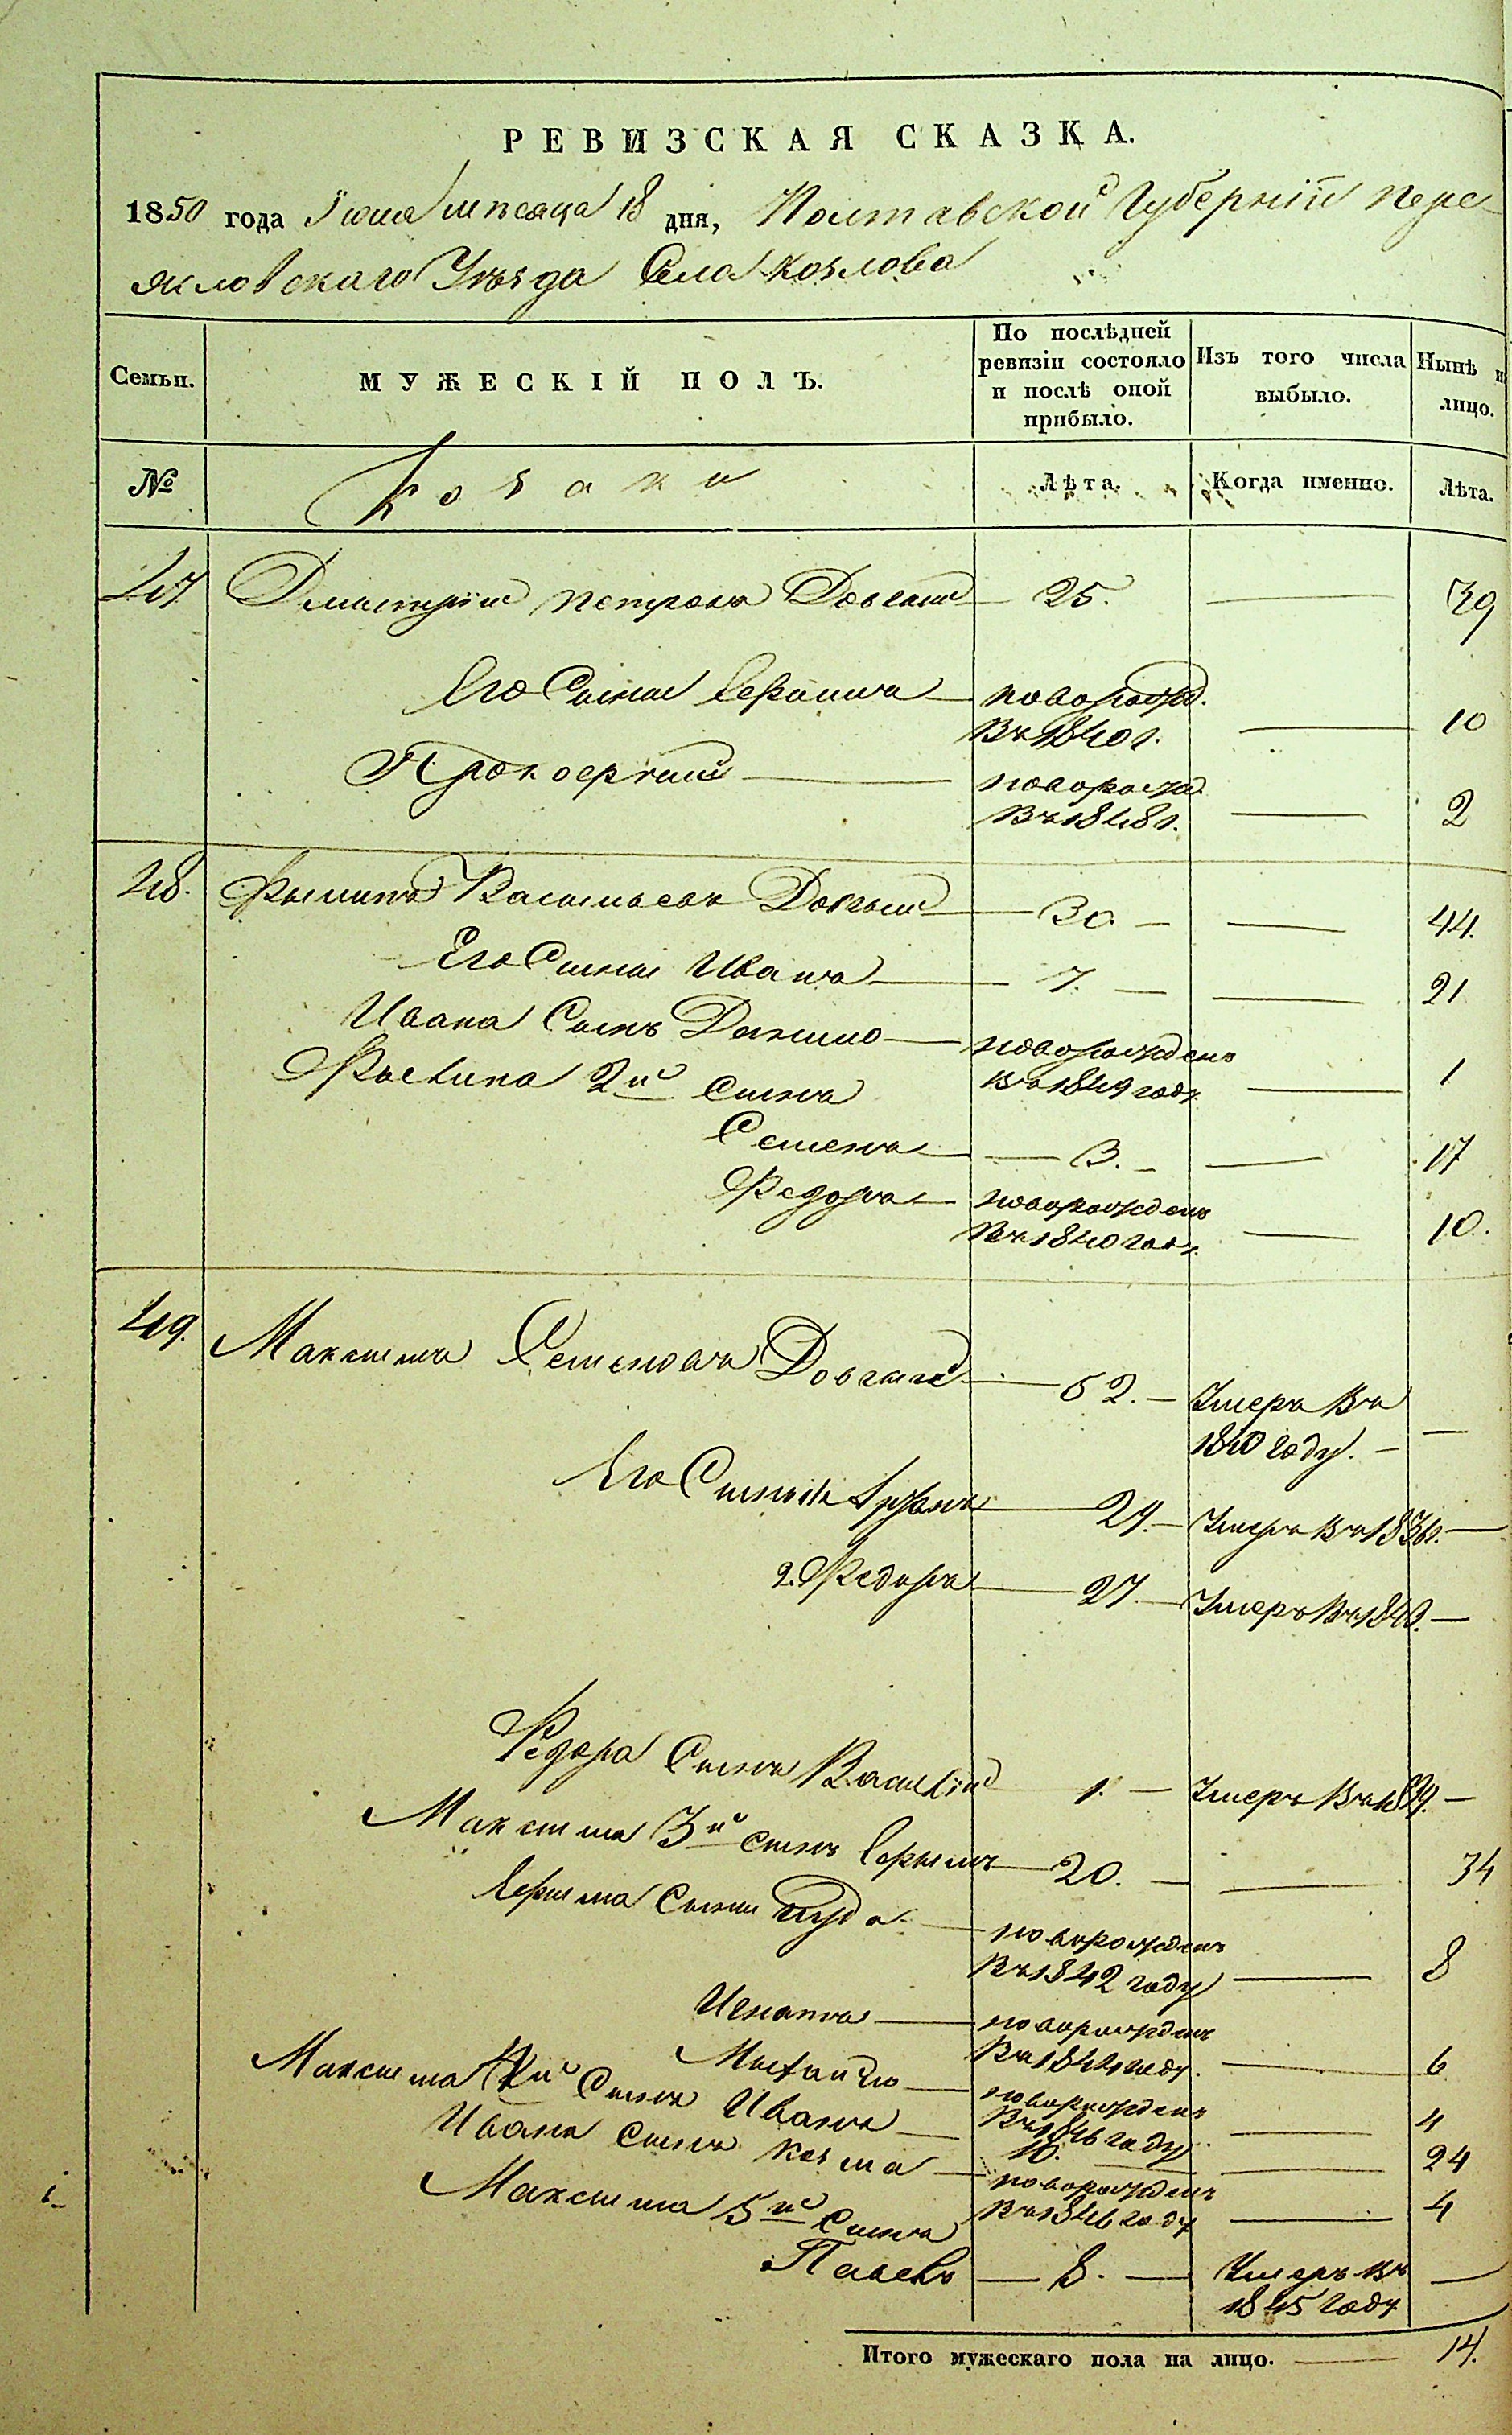 РЕВИЗСКАЯ СКАЗКА.
1850 года Июня месяца 18 дня, Полтавской Губерніи Пере-
яславскаго Уѣзда Села Козлова
Семьи. МУЖЕСКІЙ ПОЛЪ. По послѣдней ревизіи состояло и послѣ оной прибыло. Изъ того числа выбыло. Нынѣ н лицо.
№ Козаки Лѣта. Когда именно. Лѣта.
47 Дмитрій Петровъ Довгий 25. — 39
Его Сыны Ефимъ новорожд. — 10
въ 1840 г.
Прокофтий новорожд — 2
въ 1848 г.
48. Филипъ Васильевъ Довгий 30 — 44.
Его Сыны Иванъ 7. — 21
Ивана Сынъ Данило новорожденъ — 1
въ 1849 году
Филипа 2й сынъ
Семенъ 3. — 17
Федоръ новорожденъ — 10.
въ 1840 году
49. Максимъ Семеновъ Довгий 52. — Умеръ въ —
1840 году. —
Его Сыновья 29. — Умеръ въ 1836 г. —
2. Федоръ 27. — Умеръ въ 1843. —
Федора Сынъ Василій 1. — Умеръ въ —
Максима 3й сынъ Ефимъ 20. — 34
Ефима Сыны новорожденъ — 8
въ 1842 году
Игнатъ новорожденъ — 6
въ 1844 году.
Михайло новорожденъ — 4
въ 1846 году
Максима 4й Сынъ Иванъ 10. — 24
Ивана сынъ Козма новорожденъ — 4
въ 1846 году
Максима 5й Сынъ
Павелъ 8. — Умеръ въ —
1845 году
Итого мужескаго пола на лицо. — 14.